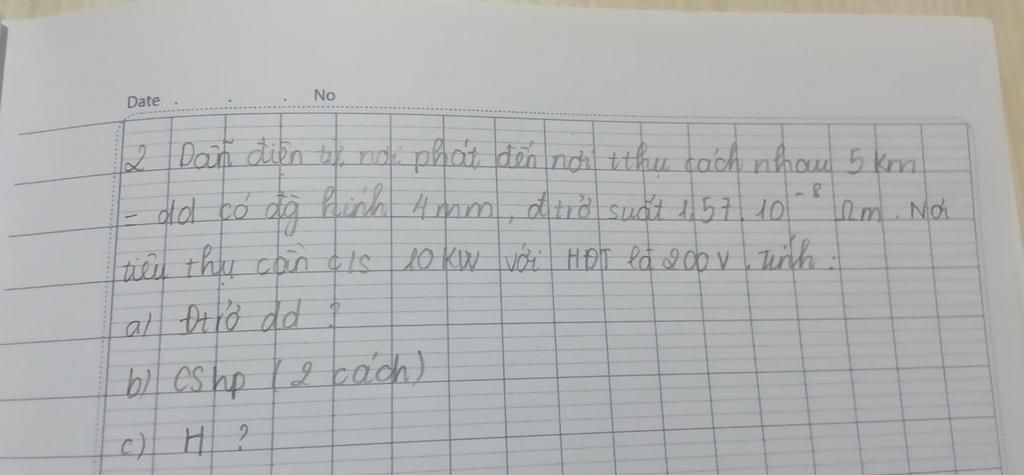 Date . . . No
2 Dẫn điện từ nơi phát đến nơi tthụ cách nhau 5 km
- dd có đg kính 4mm, đtrở suất 1,57.10⁻⁸ Ωm. Nơi
tiêu thụ cần c/s 10 KW với HĐT là 200V. Tính:
a) Đtrở dd ?
b) CShp (2 cách)
c) H ?